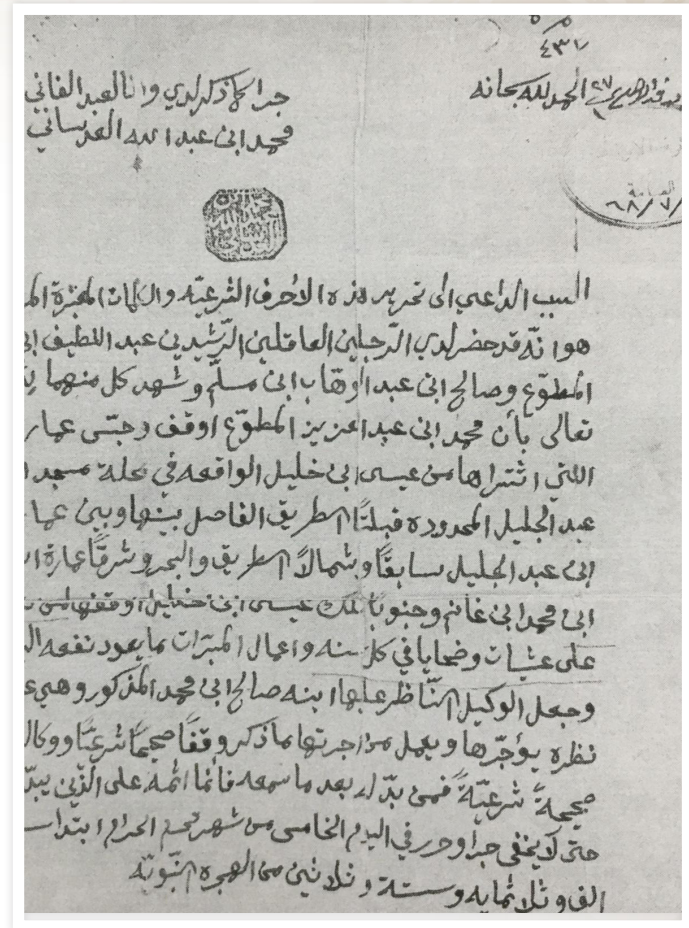 ٤٣٧
الحمد لله سبحانه
جرا كما ذكر لدي وانا العبد الفاني
محمد ابن عبد الله العدساني
العامة
٦٨/٧/
السبب الداعي الى تحرير هذه الاحرف الشرعيّه والكلمات المعتبرة
هو انّه قد حضر لدي الرّجلين العاقلين الرّشيدين عبد اللطيف
المطوّع وصالح ابن عبد الوهّاب ابن مسلّم وشهد كل منهما
تعالى بأن محمد ابن عبد العزيز المطوّع اوقف وحبّس
اللتي اشتراها من عيسى ابن خليل الواقعه في محلة مسجد
عبد الجليل المحدوده قبلتًا الطريق الفاصل بينها وبين
ابن عبد الجليل سابقًا وشمالًا الطريق والبحر وشرقًا عمارة
ابن محمد ابن غانم وجنوبًا ملك عيسى ابن خليل اوقفها من
على عشيات وضحايا في كل سنه واعمال المبرّات ما يعود نفعه
وجعل الوكيل النّاظر عليها ابنه صالح ابن محمد المذكور وهي
نظره يؤجّرها ويعمل من اجرتها ما ذكر وقفًا صحيحًا شرعيًّا
صحيحةً شرعيّةً فمن بدّله بعد ما سمعه فانّما اثمه على الّذين
حتى لا يخفى جرا وحرر في اليوم الخامس من شهر محرم الحرام
الف وثلاثمايه وستة وثلاثين من الهجره النّبويّه